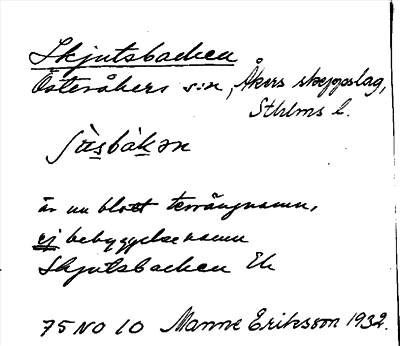 Skjutsbacken
Österåkers s:n, Åkers skeppslag,
Sthlms l.
är nu blott terrängnamn,
ej bebyggelsenamn
Skjutsbacken Ek
75 NO 10 Manne Eriksson 1932.